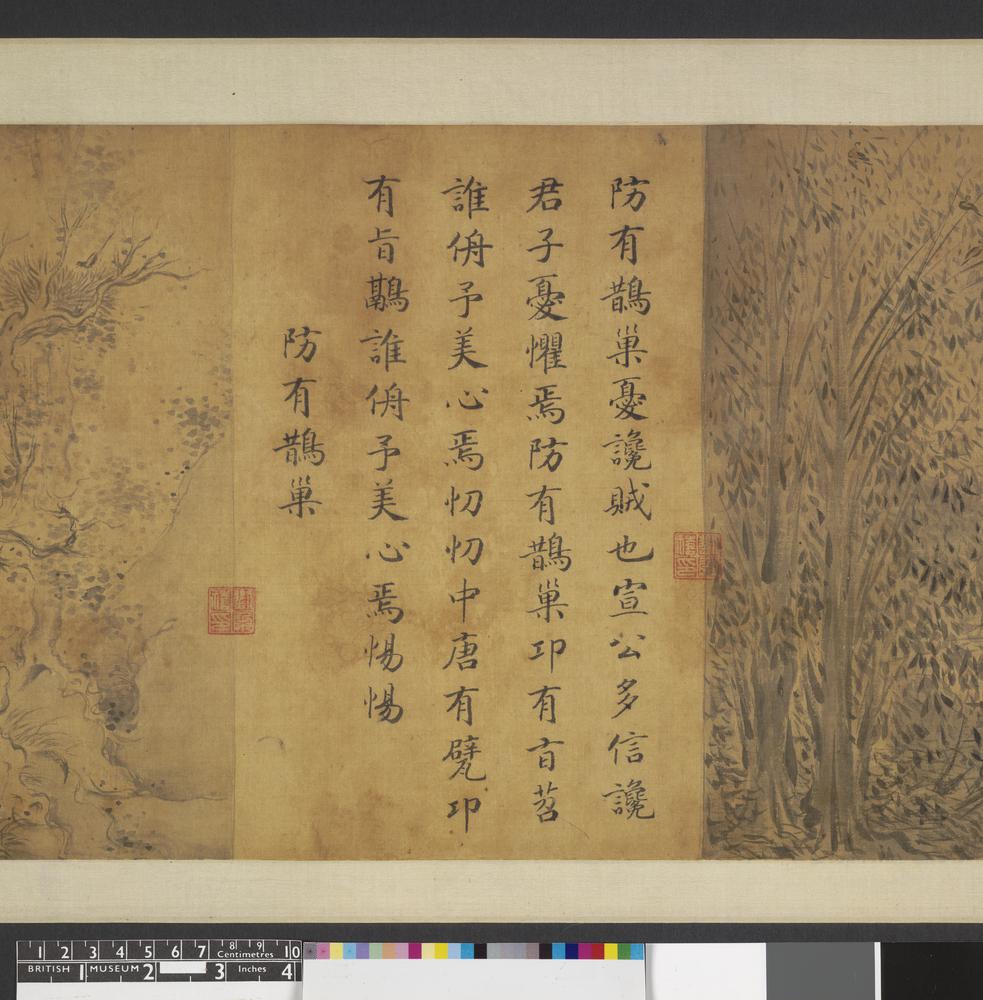 防有鵲巢憂讒賊也宣公多信讒
君子憂懼焉防有鵲巢卭有旨苕
誰侜予美心焉忉忉中唐有甓卭
有旨鷊誰侜予美心焉惕惕
防有鵲巢
1 2 3 4 5 6 7 8 9 10
Centimetres
BRITISH 1 MUSEUM 2 3 Inches 4